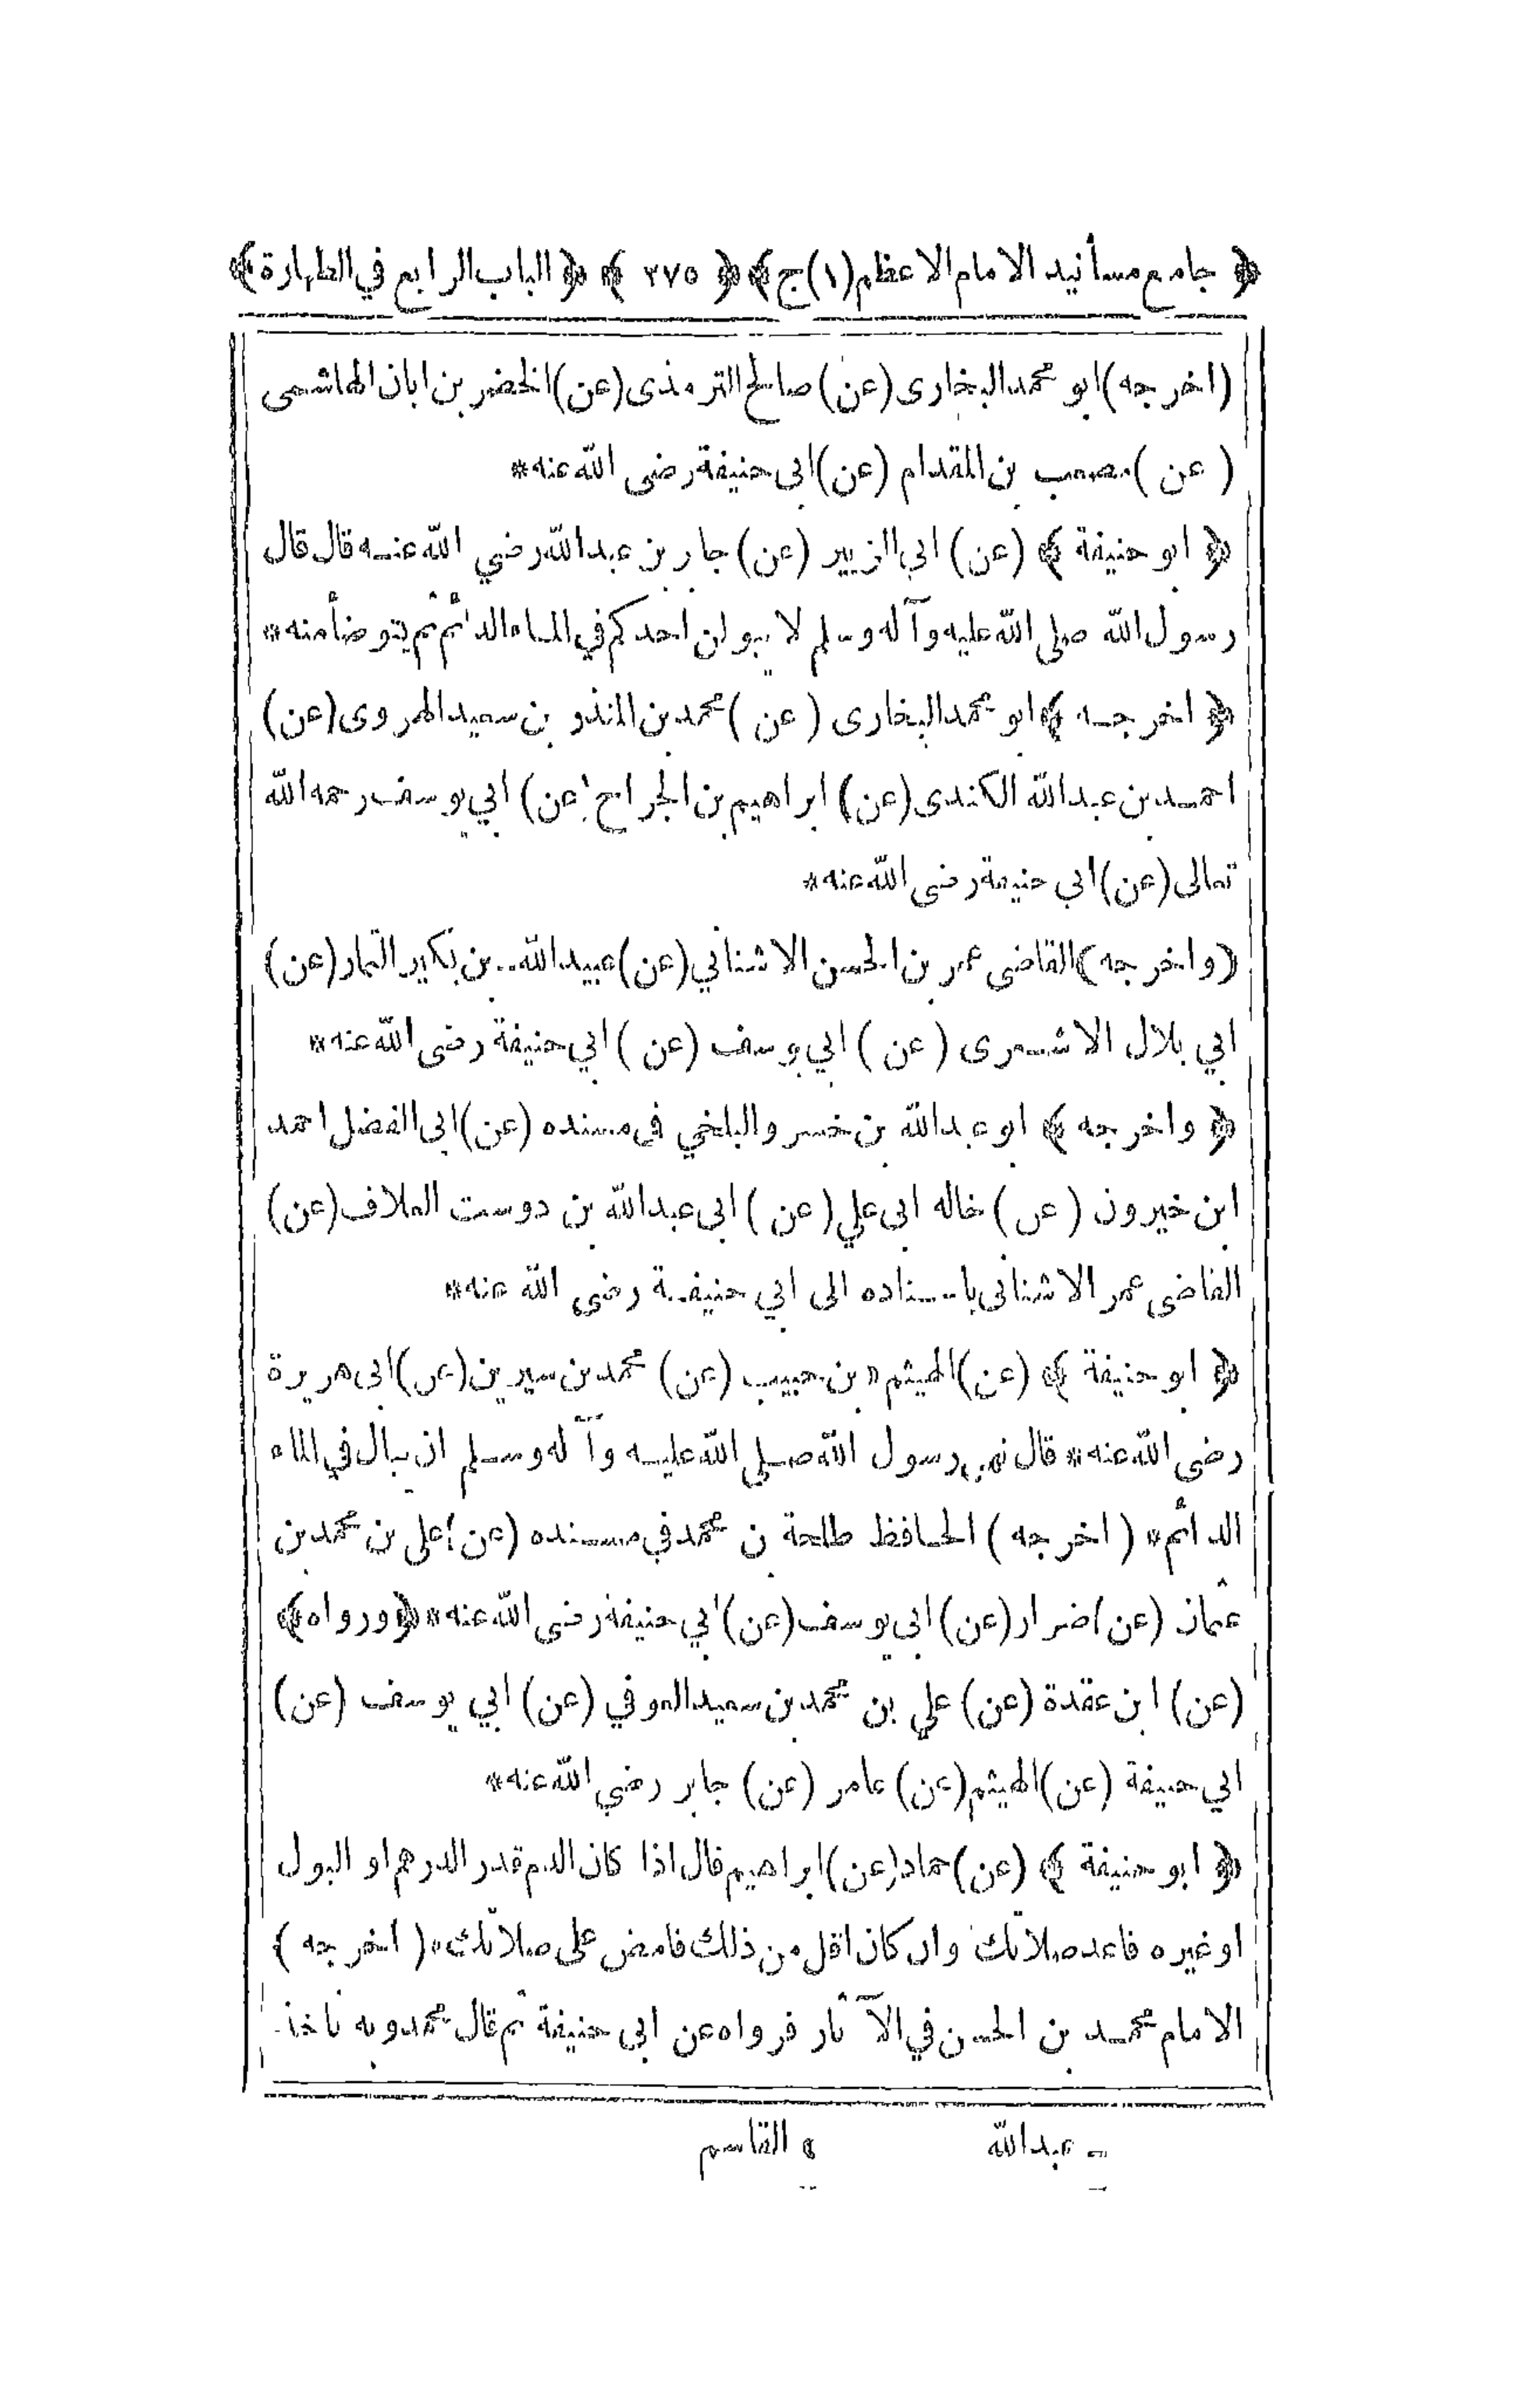 ﴿ جامع مسأنيد الامام الاعظم(١)ج﴾ ﴿ ٢٧٥ ﴾ ﴿ الباب الرابع في الطهارة﴾
(اخرجه)ابو محمد البخارى (عن) صالح الترمذى (عن)الخضر بن ابان الهاشمى
( عن )مصعب بن المقدام (عن)ابى حنيفة رضى الله عنه*
﴿ ابو حنيفة ﴾ (عن) ابي الزبير (عن) جابر بن عبدالله رضي الله عنه قال قال
رسول الله صلى الله عليه وآله وسلم لا يبولن احدكم في الماء الدائم ثم يتوضأ منه*
﴿ اخرجه ﴾ ابو محمد البخارى ( عن )محمد بن المنذر بن سعيد الهروى (عن)
احمد بن عبدالله الكندى (عن) ابراهيم بن الجراح (عن) ابي يوسف رحمه الله
تعالى (عن)ابي حنيفة رضى الله عنه*
(واخرجه)القاضى عمر بن الحسن الاشناني (عن)عبيدالله بن بكير التمار (عن)
ابي بلال الاشعرى ( عن ) ابي يوسف (عن ) ابي حنيفة رضى الله عنه*
﴿ واخرجه ﴾ ابو عبدالله بن خسرو البلخي فى مسنده (عن)ابى الفضل احمد
ابن خيرون ( عن ) خاله ابى علي (عن ) ابى عبدالله بن دوست العلاف (عن)
القاضى عمر الاشنانى باسناده الى ابي حنيفة رضى الله عنه*
﴿ ابو حنيفة ﴾ (عن)الهيثم * بن حبيب (عن) محمد بن سيرين (عن)ابى هريرة
رضى الله عنه * قال نهى رسول الله صلى الله عليه وآله وسلم ان يبال في الماء
الدائم* ( اخرجه ) الحافظ طلحة بن محمد في مسنده (عن)على بن محمد بن
عثمان (عن)ضرار (عن) ابى يوسف (عن) ابي حنيفة رضى الله عنه * ﴿ورواه﴾
(عن) ابن عقدة (عن) علي بن محمد بن سعيد العوفي (عن) ابي يوسف (عن)
ابي حنيفة (عن)الهيثم (عن) عامر (عن) جابر رضي الله عنه*
﴿ ابو حنيفة ﴾ (عن)حماد (عن)ابراهيم قال اذا كان الدم قدر الدرهم او البول
او غيره فاعد صلاتك وان كان اقل من ذلك فامض على صلاتك* ( اخرجه )
الامام محمد بن الحسن في الآثار فرواه عن ابى حنيفة ثم قال محمد وبه ناخذ
عبدالله
القاسم